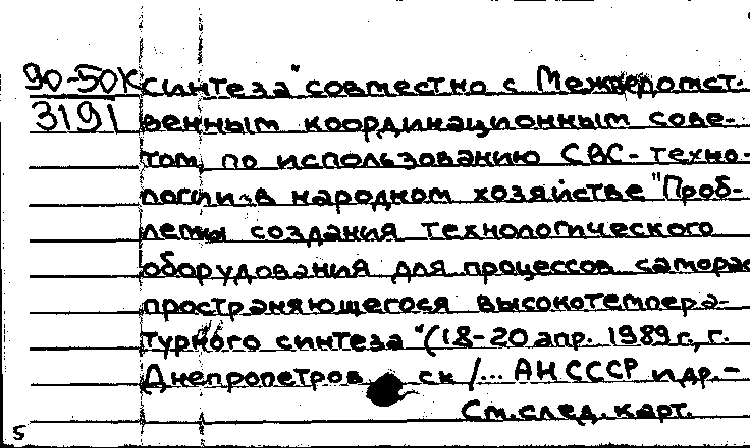 90-50К синтеза" совместно с Межведомст-
3191 венным координационным сове-
том по использованию СВС-техно-
логии в народном хозяйстве "Проб-
лемы создания технологического
оборудования для процессов саморас
пространяющегося высокотемпера-
турного синтеза" (18-20 апр. 1989 г., г.
Днепропетров ск /... АН СССР и др.-
См. след. карт.
5